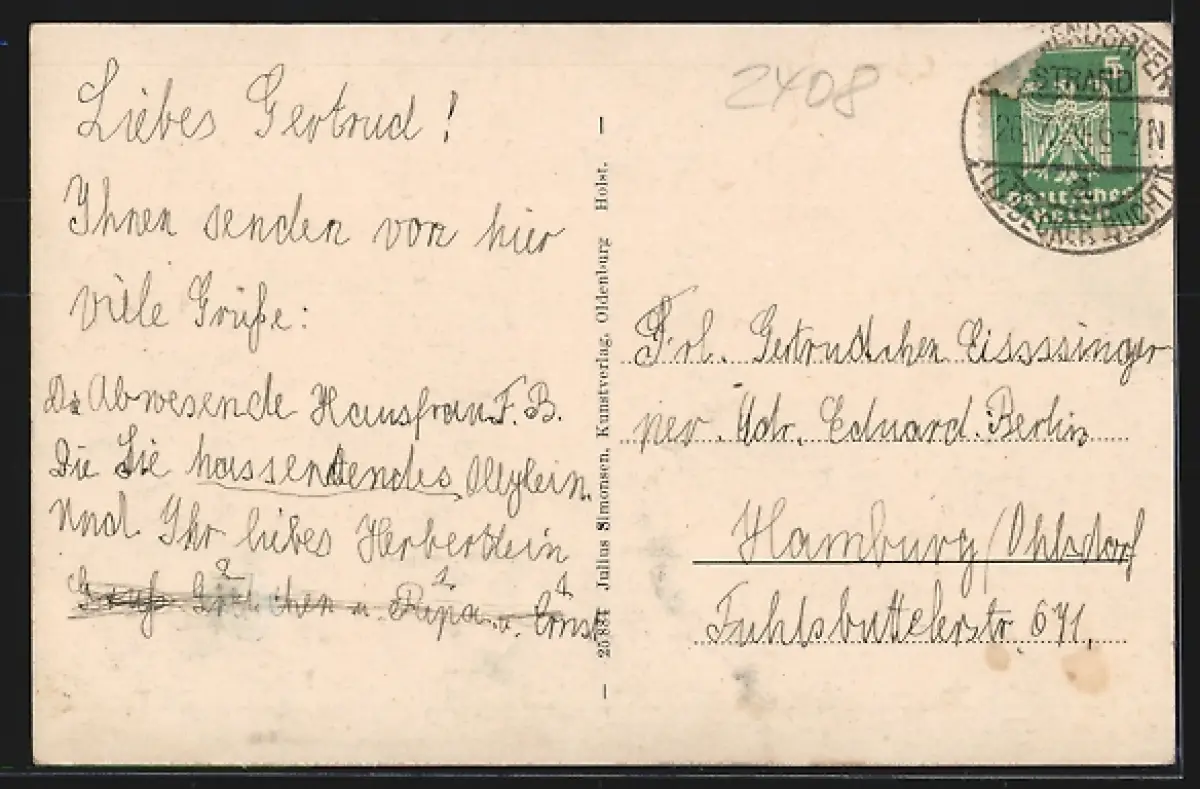 Liebes Gertrud!
Ihnen senden von hier
viele Grüße:
Die Abwesende Hausfrau F. B.
Die Sie hassendendes Ollylein.
Und Ihr liebes Herbertlein
Gruß chen u. Papa u. Ernst
2 1 1
25 884 Julius Simonsen, Kunstverlag, Oldenburg Holst.
2408
ENDORFER
STRAND
6-7N
LÜBECKER BUCHT
5
Deutsches
Frl. Gertrudchen Eissssinger
per. Adr. Eduard. Berlin
Hamburg/Ohlsdorf
Fuhlsbüttelerstr. 671.